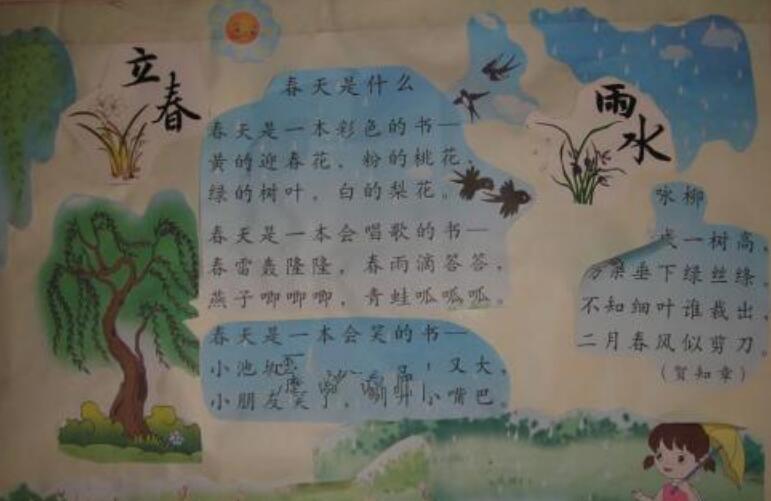 立春
春天是什么
春天是一本彩色的书—
黄的迎春花，粉的桃花，
绿的树叶，白的梨花。
春天是一本会唱歌的书—
春雷轰隆隆，春雨滴答答，
燕子唧唧唧，青蛙呱呱呱。
春天是一本会笑的书—
小池 又大，
小朋友笑了， 小嘴巴。
雨水
咏柳
成一树高，
垂下绿丝绦。
不知细叶谁裁出，
二月春风似剪刀。
（贺知章）